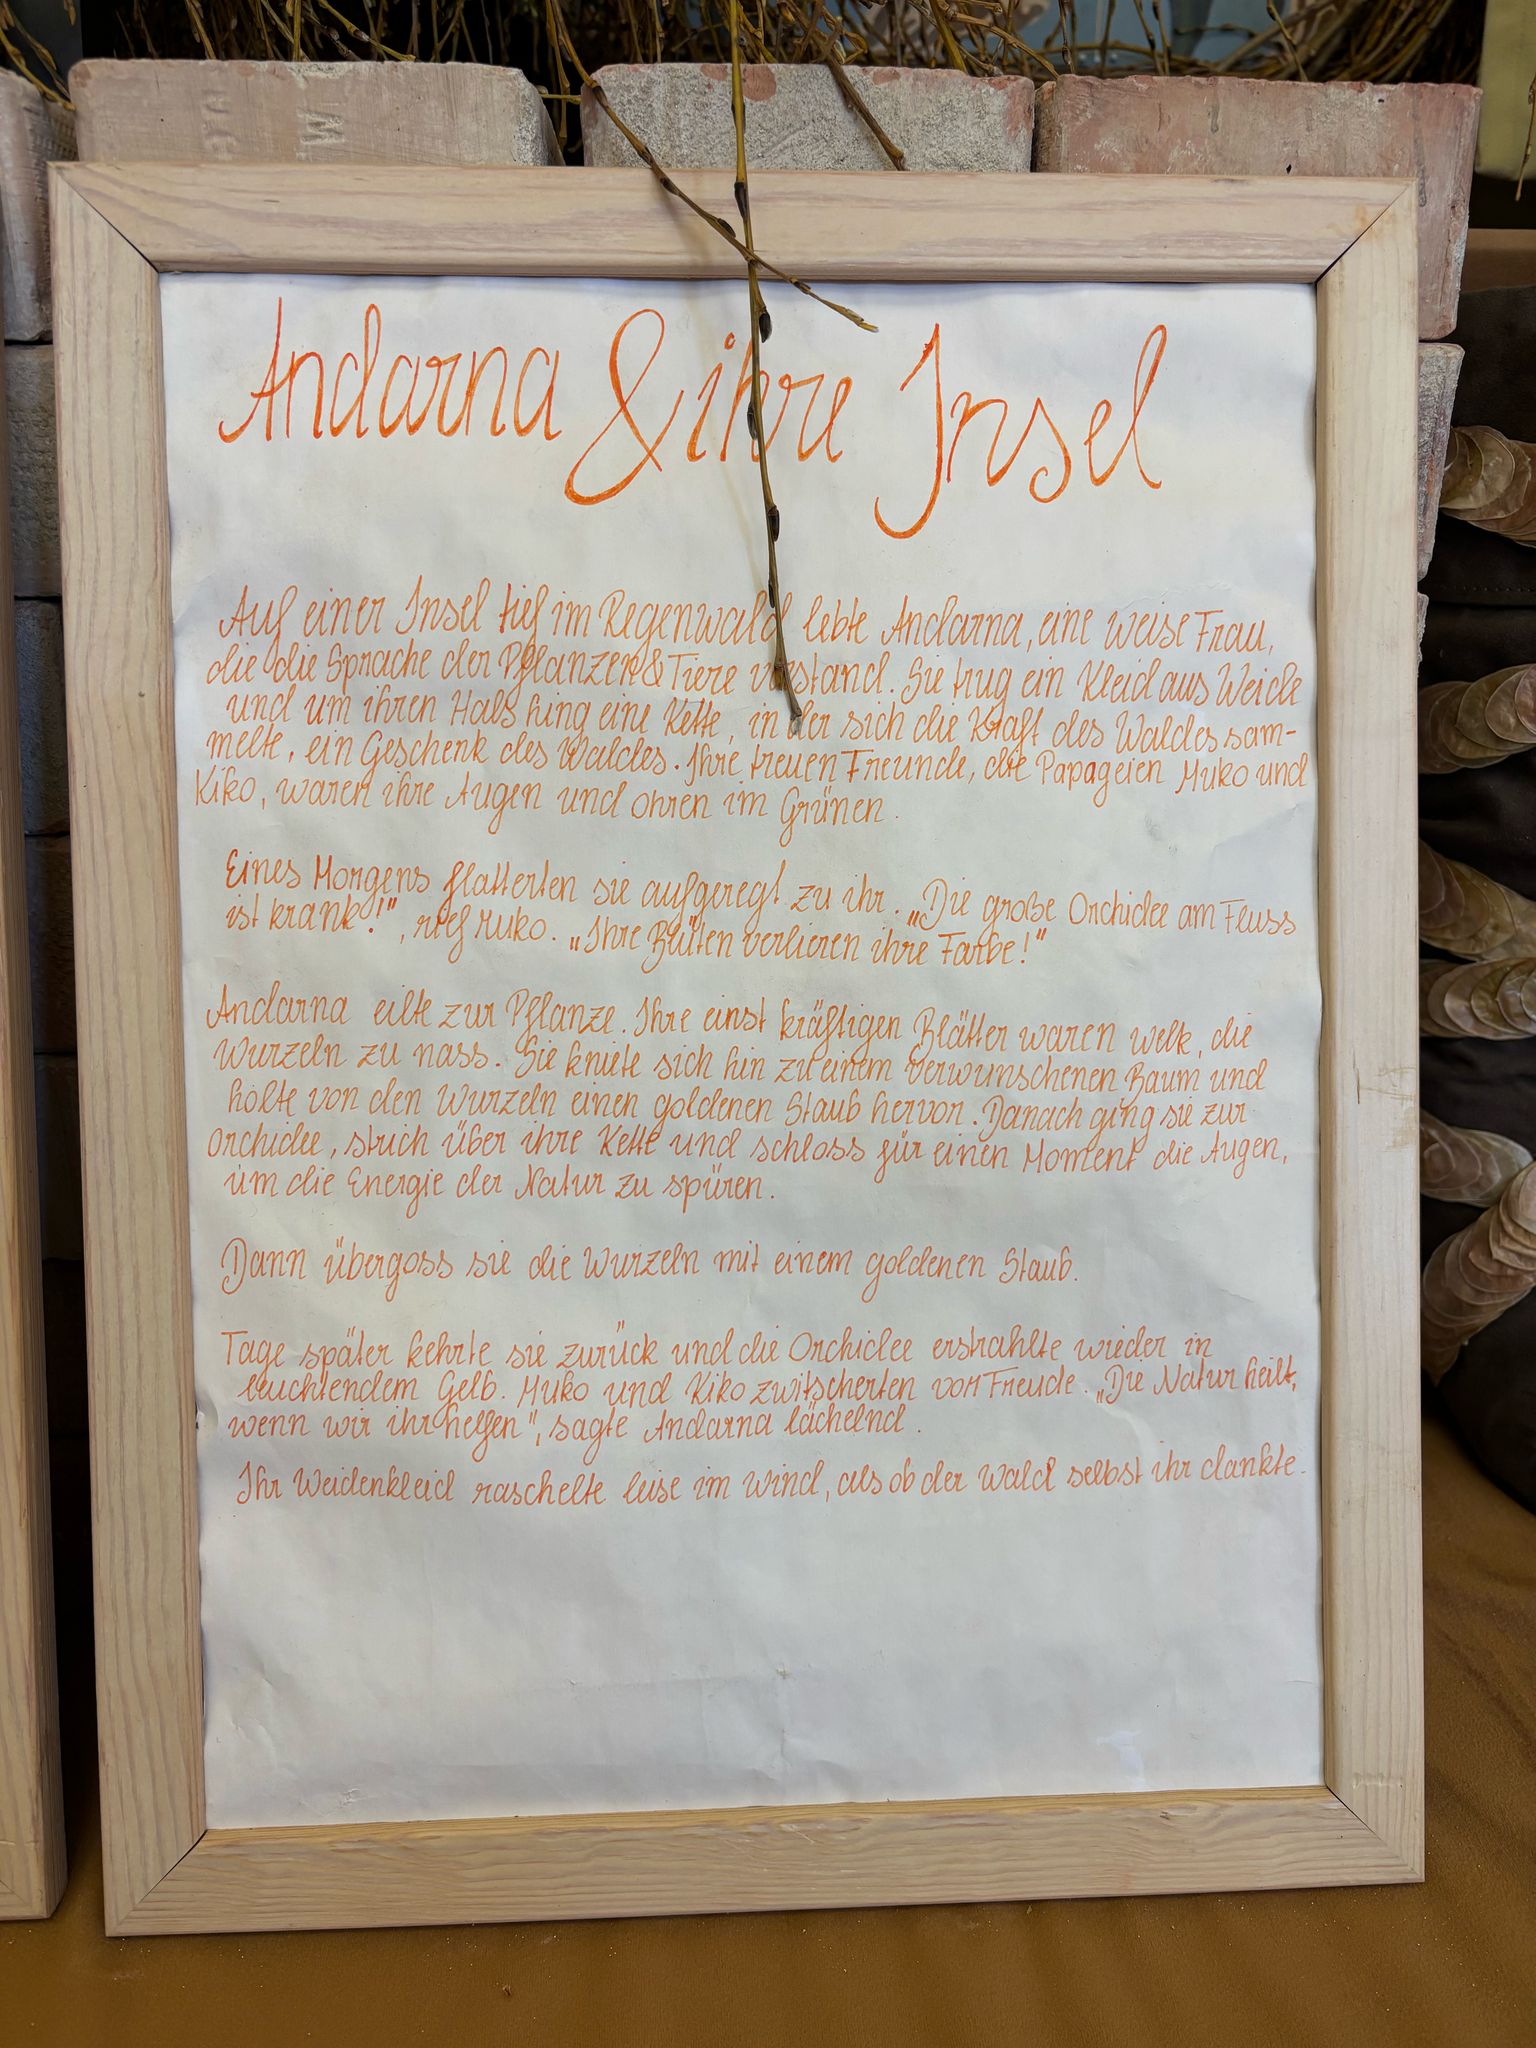 Andarna & ihre Insel
Auf einer Insel tief im Regenwald lebte Andarna, eine weise Frau,
die die Sprache der Pflanzen & Tiere verstand. Sie trug ein Kleid aus Weide
und um ihren Hals hing eine Kette, in der sich die Kraft des Waldes sam-
melte, ein Geschenk des Waldes. Ihre treuen Freunde, die Papageien Muko und
Kiko, waren ihre Augen und Ohren im Grünen.
Eines Morgens flatterten sie aufgeregt zu ihr. „Die große Orchidee am Fluss
ist krank!", rief Muko. „Ihre Blüten verlieren ihre Farbe!"
Andarna eilte zur Pflanze. Ihre einst kräftigen Blätter waren welk, die
Wurzeln zu nass. Sie kniete sich hin zu einem verwunschenen Baum und
holte von den Wurzeln einen goldenen Staub hervor. Danach ging sie zur
Orchidee, strich über ihre Kette und schloss für einen Moment die Augen,
um die Energie der Natur zu spüren.
Dann übergoss sie die Wurzeln mit einem goldenen Staub.
Tage später kehrte sie zurück und die Orchidee erstrahlte wieder in
leuchtendem Gelb. Muko und Kiko zwitscherten vor Freude. „Die Natur heilt,
wenn wir ihr helfen", sagte Andarna lächelnd.
Ihr Weidenkleid raschelte leise im Wind, als ob der Wald selbst ihr dankte.